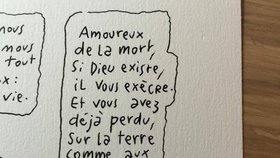 nous
nous
tout
x :
vie.
Amoureux
de la mort,
Si Dieu existe,
il vous exècre.
Et vous avez
déjà perdu,
Sur la terre
comme aux